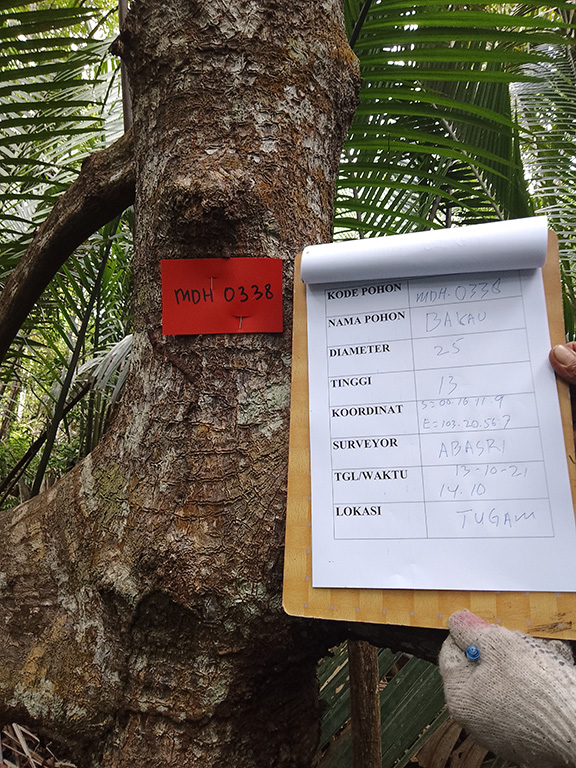 MDH 0338
KODE POHON MDH.0338
NAMA POHON BAKAU
DIAMETER 25
TINGGI 13
KOORDINAT S=00.16.11.9
E=103.20.56.7
SURVEYOR ABASRI
TGL/WAKTU 13-10-21
14.10
LOKASI TUGAM